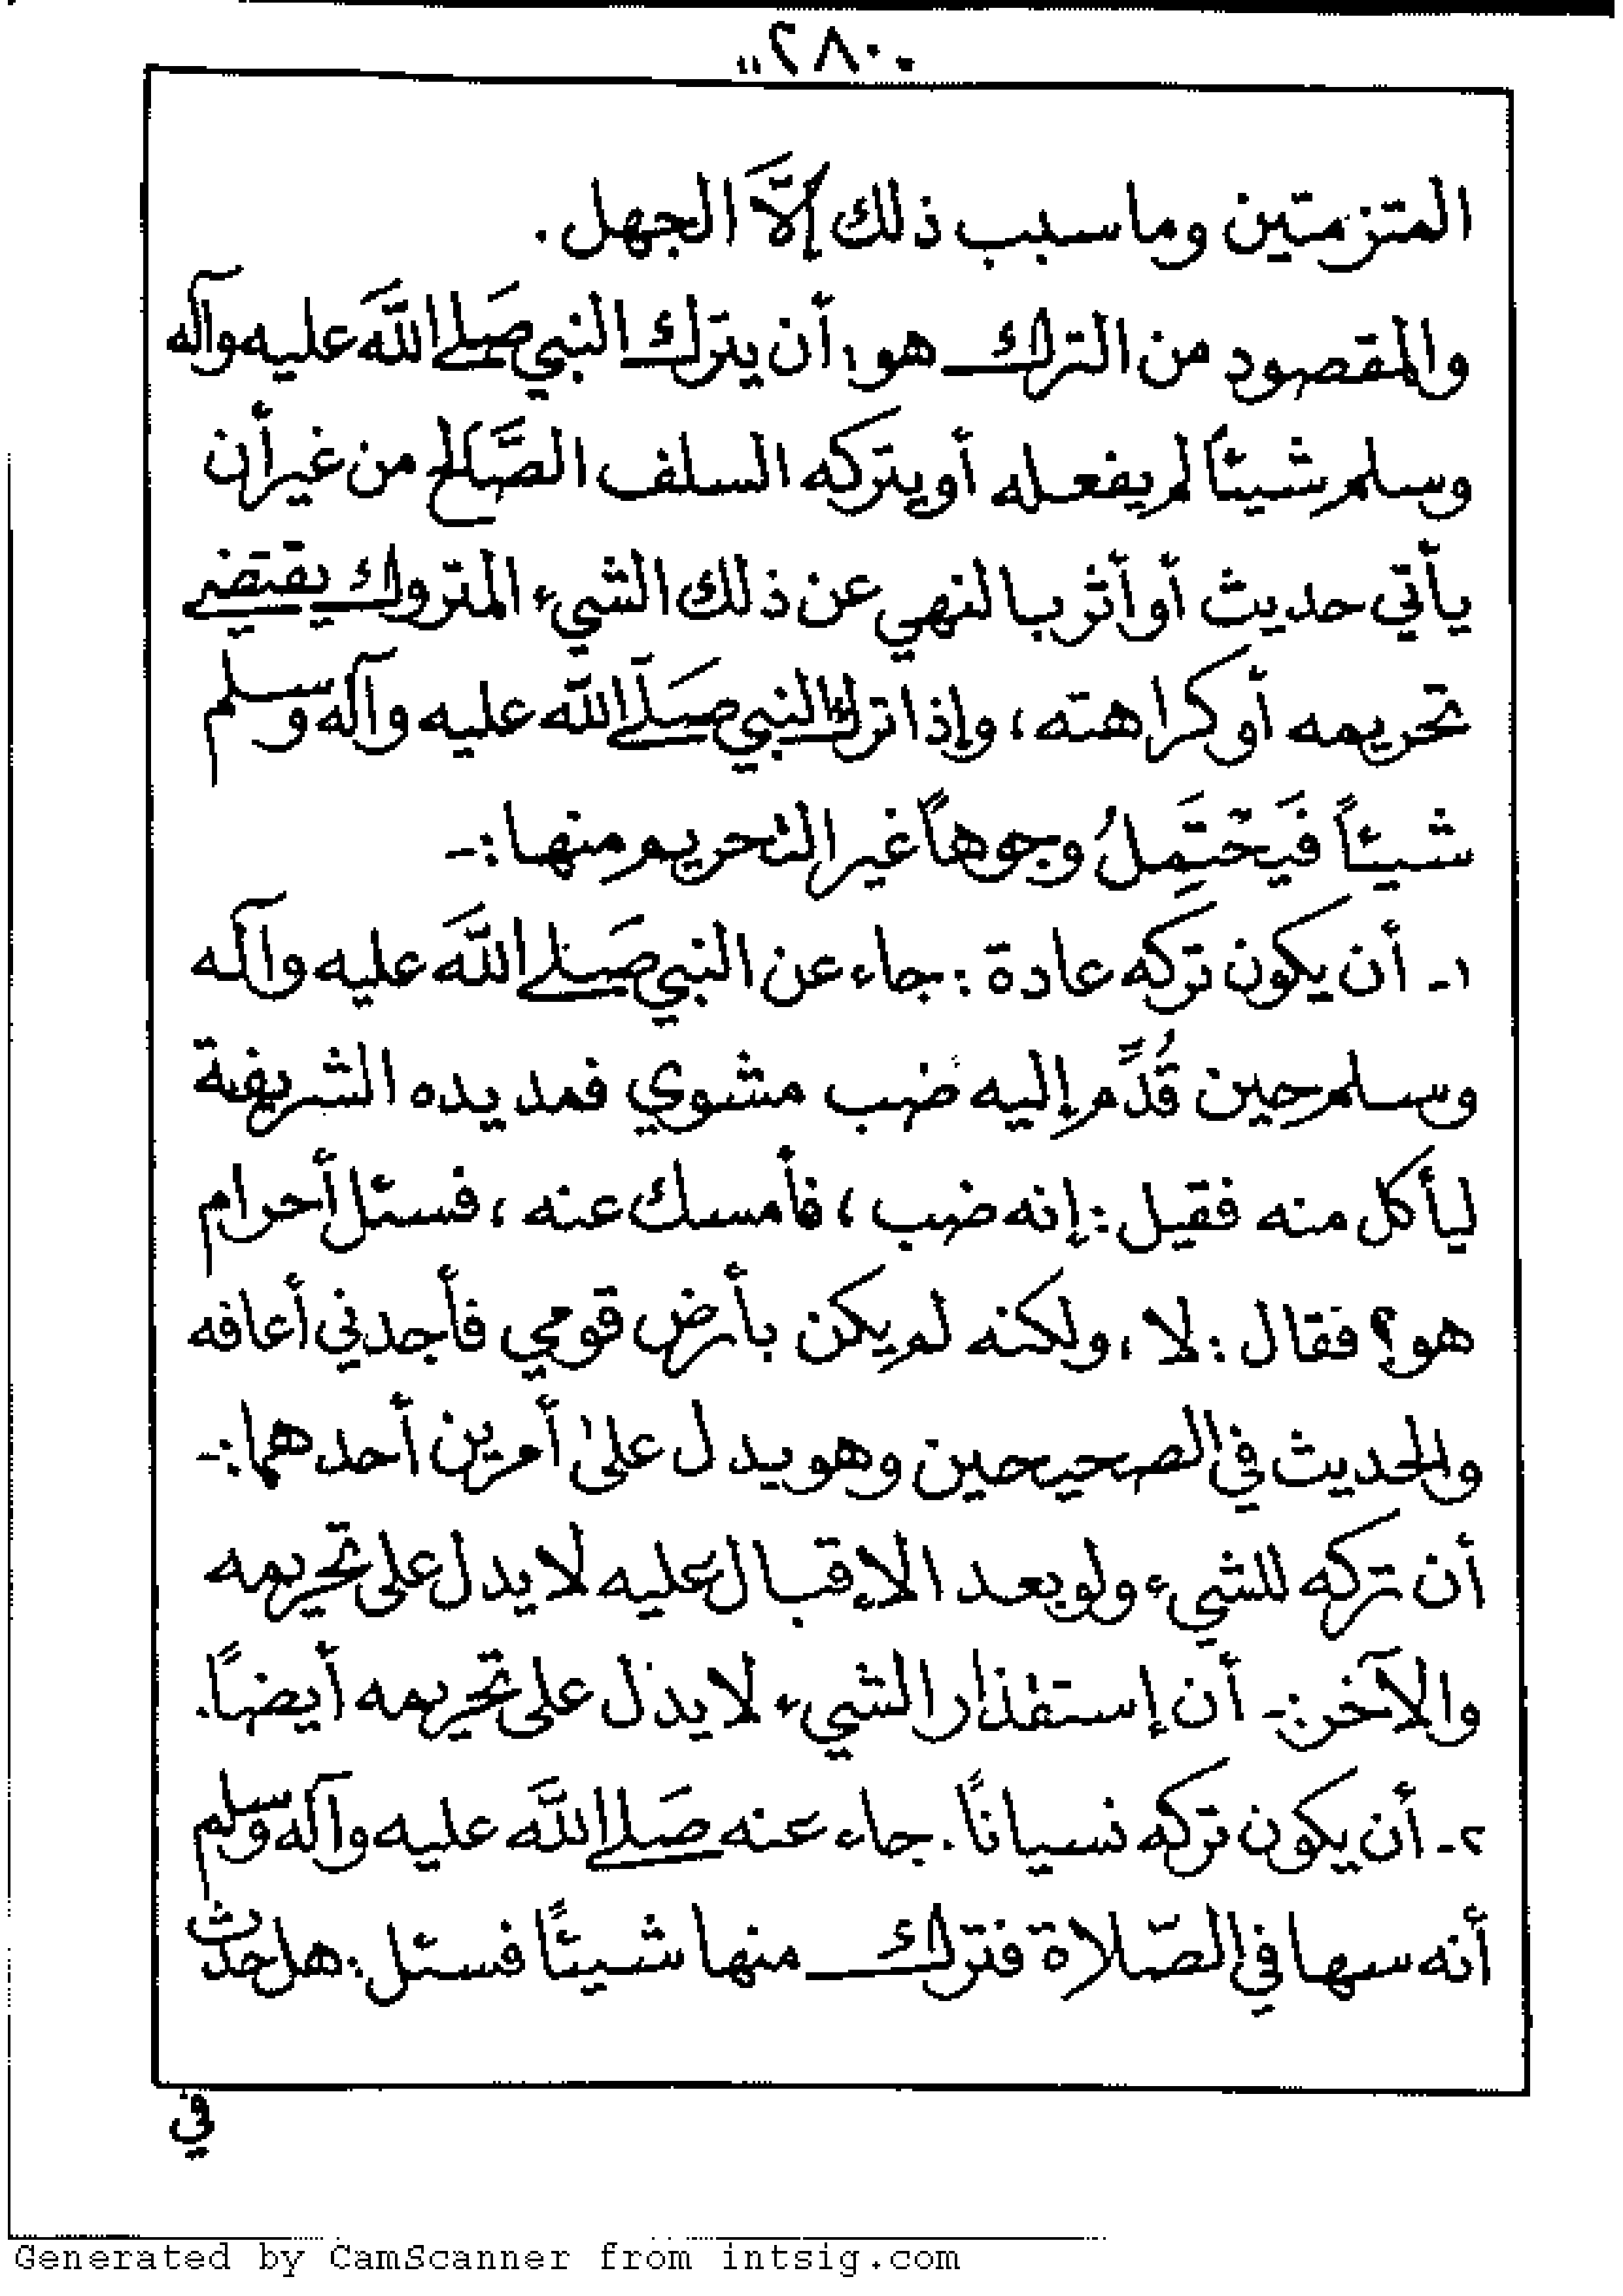 ٢٨٠
المتزمتين وما سبب ذلك إلَّا الجهل .
والمقصود من الترك هو: أن يترك النبي صَلى اللَّه عليه وآله
وسلم شيئاً لم يفعله أو يتركه السلف الصَّالح من غير أن
يأتي حديث أو أثر بالنهي عن ذلك الشيء المتروك يقتضي
تحريمه أو كراهته ، وإذا ترك النبي صَلى اللَّه عليه وآله وسلم
شيئاً فَيَحْتَمِلُ وجوهاً غير التحريم منها :-
١- أن يكون تركه عادة : جاء عن النبي صَلى اللَّه عليه وآله
وسلم حين قُدِّم إليه ضب مشوي فمد يده الشريفة
ليأكل منه فقيل : إنه ضب ، فأمسك عنه ، فسئل أحرام
هو؟ فقال : لا ، ولكنه لم يكن بأرض قومي فأجدني أعافه
والحديث في الصحيحين وهو يدل على أمرين أحدهما :-
أن تركه للشيء ولو بعد الإقبال عليه لا يدل على تحريمه
والآخر :- أن إستقذار الشيء لا يدل على تحريمه أيضاً.
٢- أن يكون تركه نسياناً . جاء عنه صَلى اللَّه عليه وآله وسلم
أنه سها في الصّلاة فترك منها شيئاً فسئل : هل حدث
في
Generated by CamScanner from intsig.com